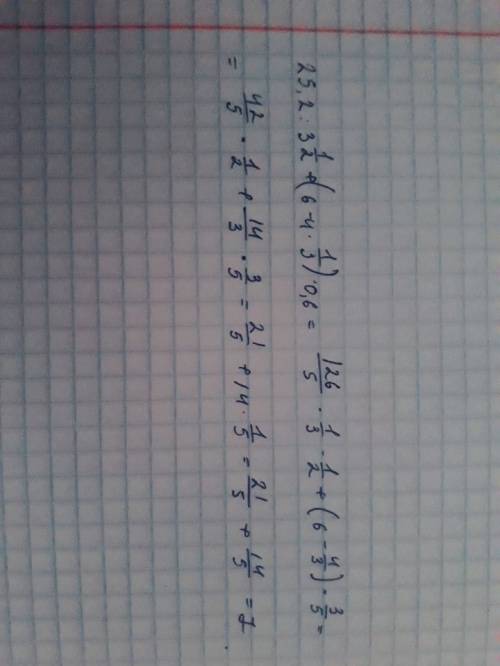 25,2 : 3 1/2 + (6 - 4 · 1/3) · 0,6 = 126/5 · 1/3 · 1/2 + (6 - 4/3) · 3/5 =
= 42/5 · 1/2 + 14/3 · 3/5 = 21/5 + 14 · 1/5 = 21/5 + 14/5 = 7